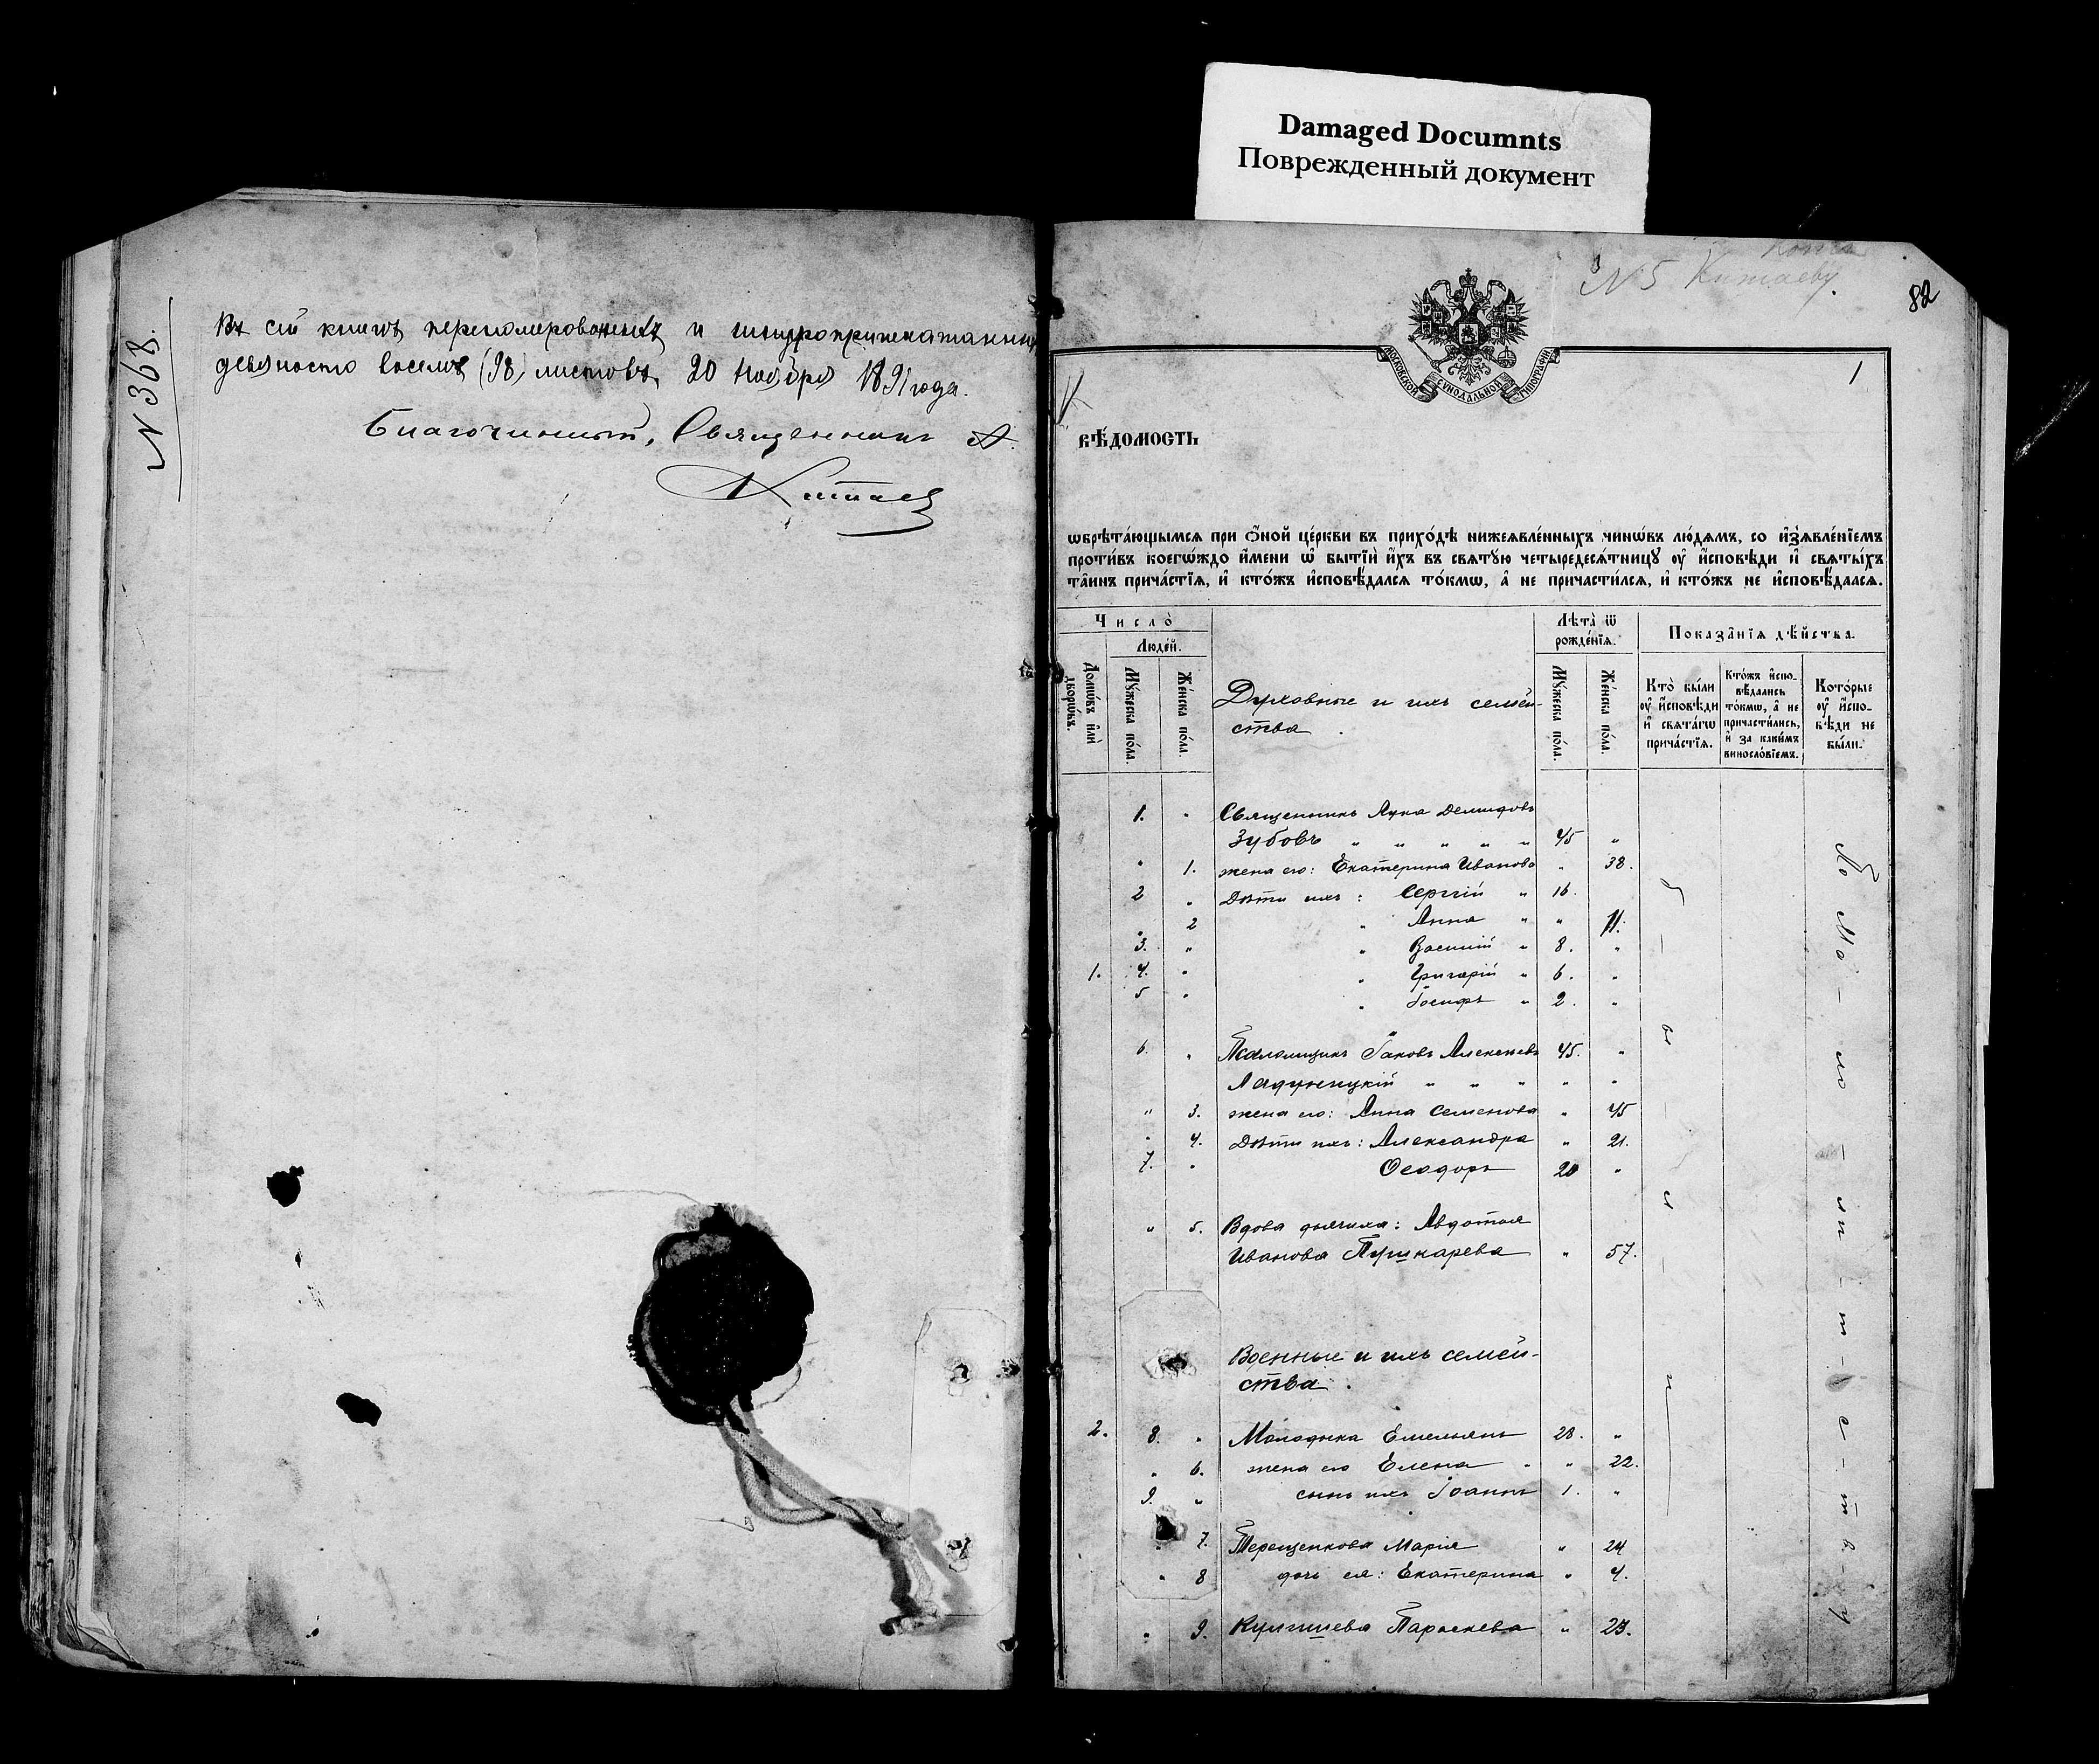 Damaged Documnts
Поврежденный документ
N 368.
Въ сей книгѣ перенумерованныхъ и шнуроприпечатанны
девяносто восемь (98) листовъ, 20 Ноября 1891 года.
Благочинный, Священникъ А.
Китаев
N 5 Китаеву.
82
1
МОСКОВСКОЙ СѴНОДАЛЬНОЙ ТИПОГРАФІИ
ВѢ́ДОМОСТЬ
ѡбрѣта́ющымся при ѻ҆́ной це́ркви въ прихо́дѣ нижеꙗвле́нныхъ чинѡ́въ лю́дѧмъ, со и҆з̾ѧвле́нїемъ
проти́въ коегѡ́ждо и҆́мени ѡ҆ бытїѝ и҆́хъ въ свѧту́ю четыредесѧ́тницу ᲂу҆ и҆́сповѣди и҆ свѧты́хъ
та̑инъ прича́стїѧ, и҆ кто́жъ и҆сповѣ́дался то́кмѡ, а҆ не причасти́лсѧ, и҆ кто́жъ не и҆сповѣ́даасѧ.
Число̀
Люде́й.
Домѡ́въ и҆лѝ дворѡ́въ.
Мꙋ́жеска по́ла.
Же́нска по́ла.
Духовные и ихъ семей-
ства.
Лѣта̀ ѿ
рожде́нїѧ.
Мꙋ́жеска по́ла.
Же́нска по́ла.
Показа̑нїѧ дѣ́йства.
Кто̀ бы́ли
ᲂу҆ и҆́сповѣди
и҆ свѧта́гѡ
прича́стїѧ.
Кто́жъ и҆спо-
вѣ́дались
то́кмѡ, а҆ не
причасти́лись,
и҆ за каки́мъ
винословїемъ.
Кото́рые
ᲂу҆ и҆́спо-
вѣди не
бы́ли.
1. " Священникъ Лука Демидовъ
Зубовъ " " " " " 45 "
" 1. жена его: Екатерина Иванова " 38.
2 " Дѣти ихъ: Сергій " 16.
" 2 " Анна " " 11.
3. " " Василій " 8. "
1. 4. " " Григорій " 6. "
5 " " Іосифъ " 2. "
6. " Псаломщикъ Іаковъ Алексеевъ 45. "
" " " " "
" 3. жена его: Анна Семенова " 45
" 4. Дѣти ихъ: Александра " 21.
7. " Ѳеодоръ 20 "
" 5. Вдова дьячиха: Авдотія
Иванова Пушкарева " 57.
Военные и ихъ семей-
ства.
2. 8. " Молодыка Емельянъ 28. "
" 6. жена его Елена " " 22.
9. " сынъ ихъ Іоаннъ 1. "
" 7. Терещенкова Марія " 24
" 8 дочь ея: Екатерина " 4.
" 9. Параскева " 23.
б - ы - л - и